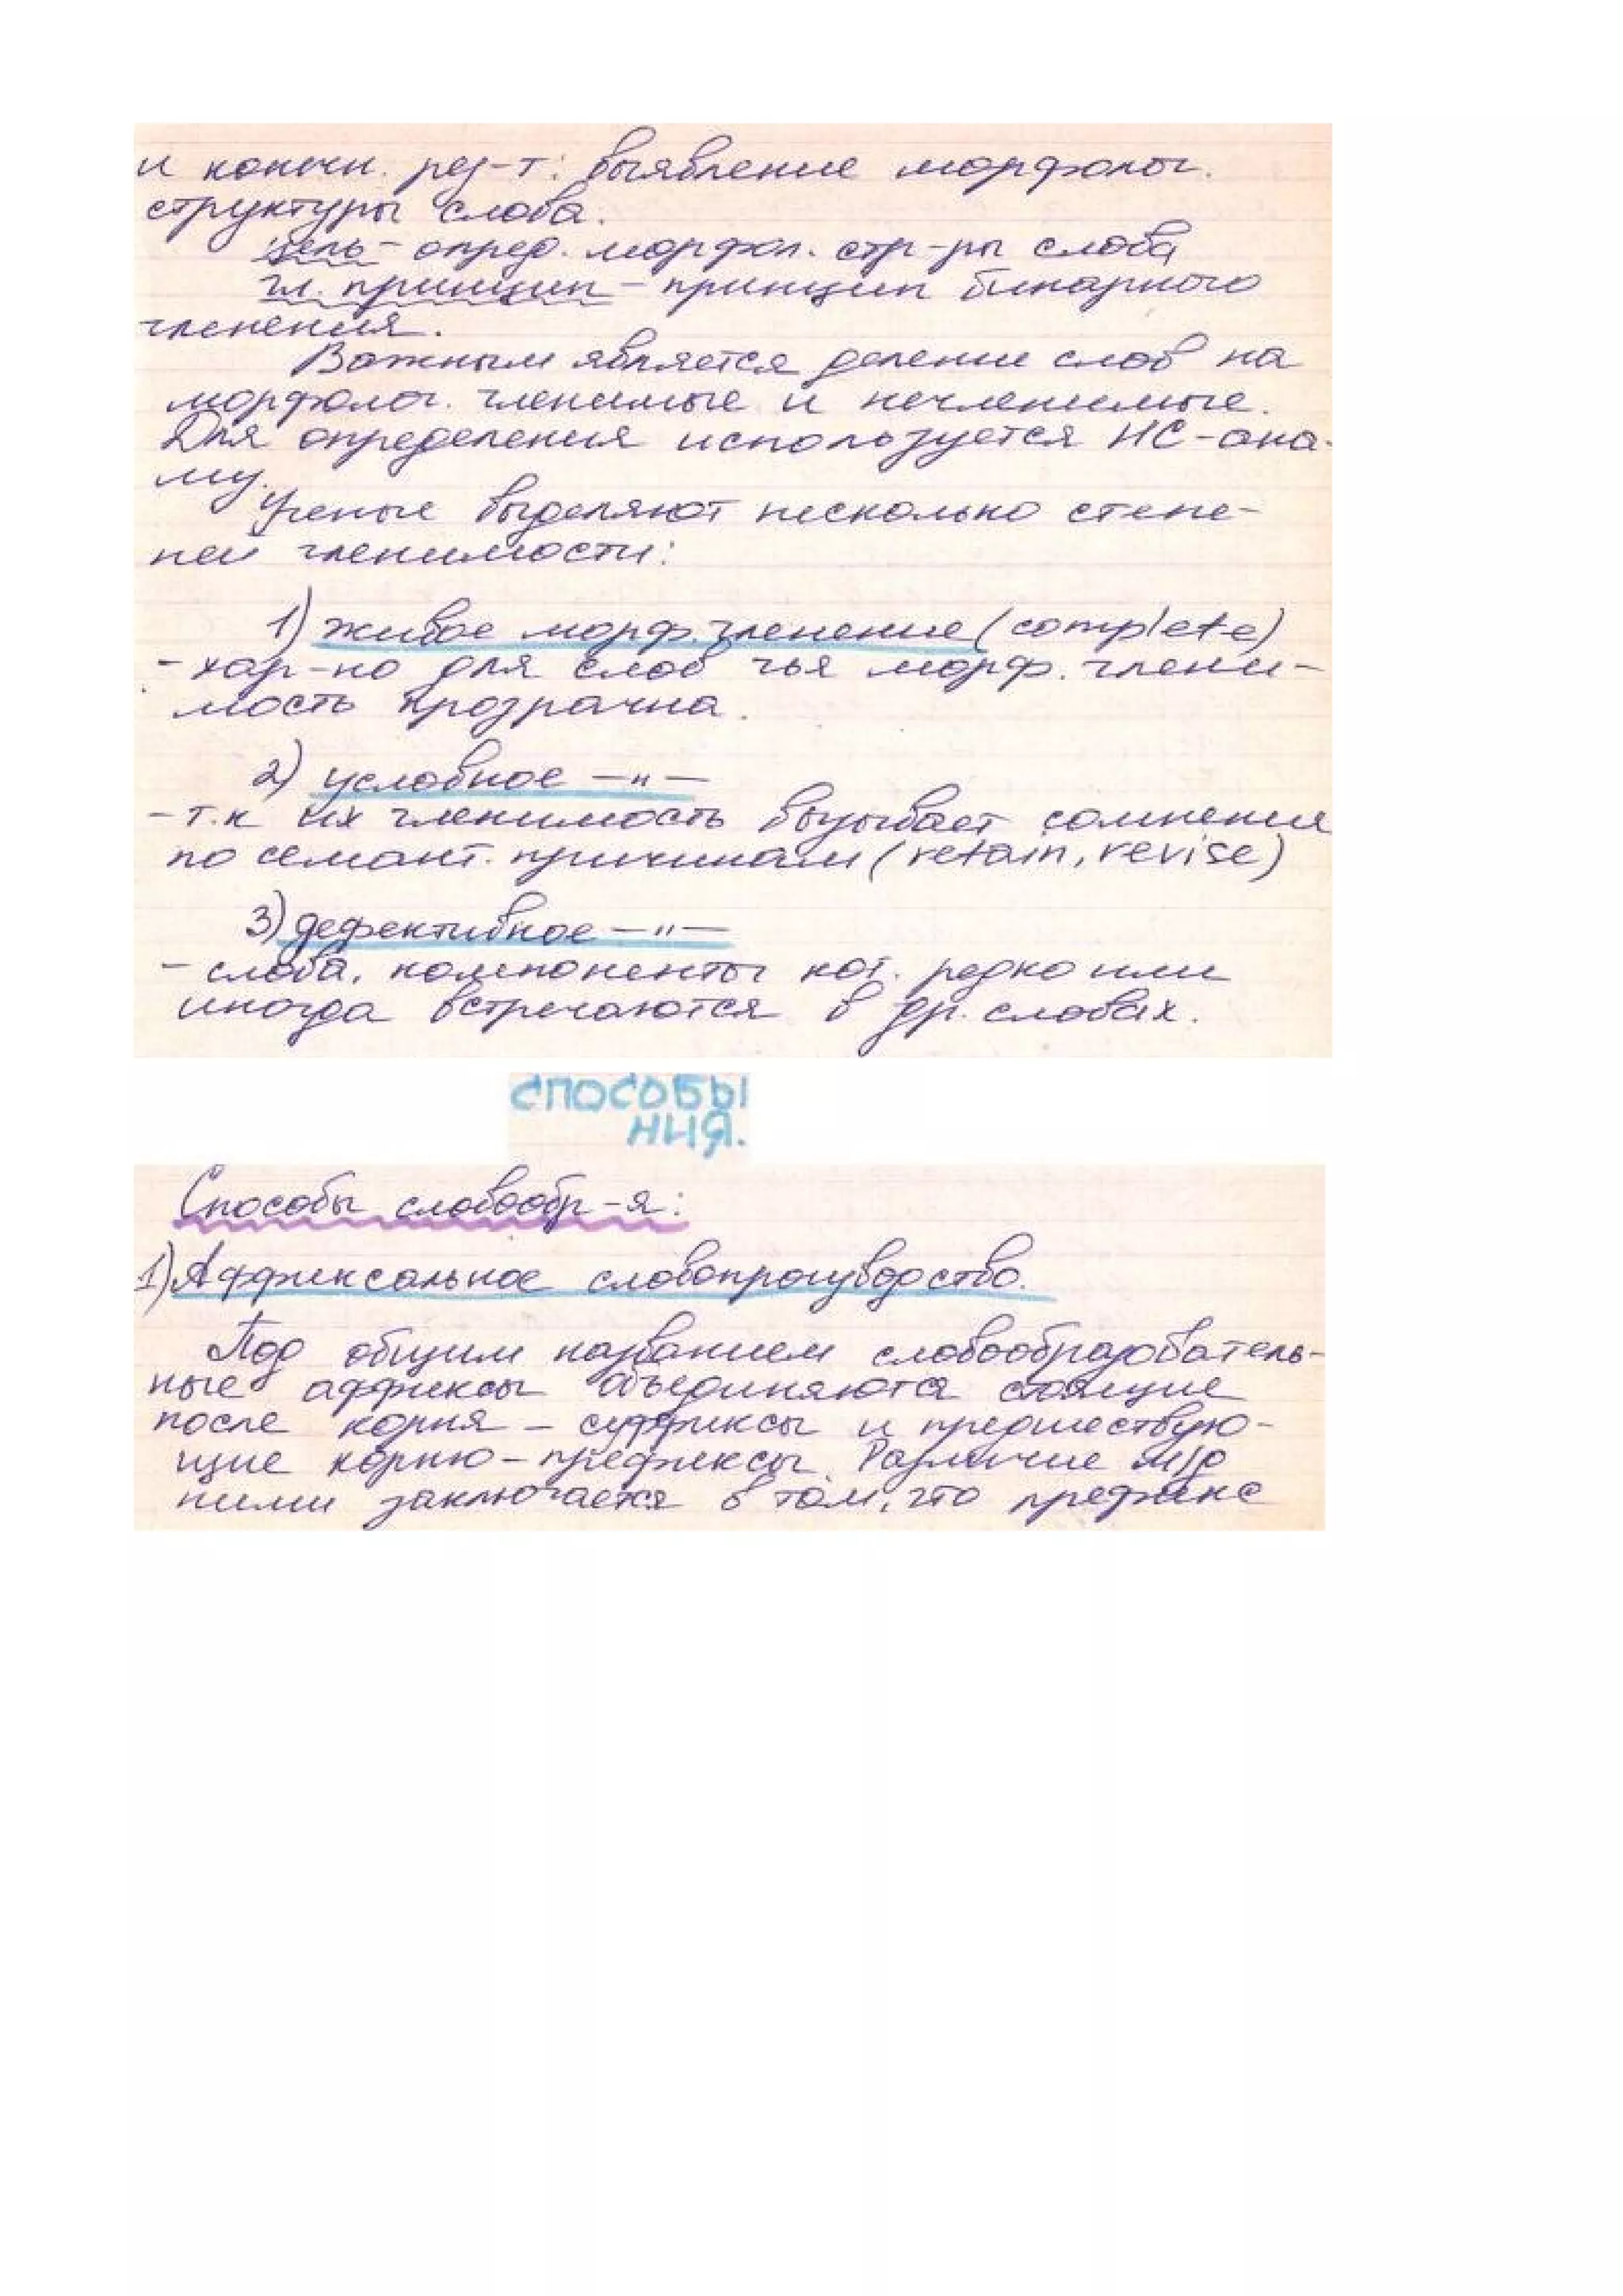 и конечн. рез-т: выявление морфолог.
структуры слова.
цель - опред. морфол. стр-ры слова
гл. принцип - принцип бинарного
членения.
Важным является деление слов на
морфолог. членимые и нечленимые.
Для определения используется НС-ана-
му.
Ученые выделяют несколько степе-
ней членимости:
1) живое морф. членение (complete)
- хар-но для слов чья морф. члени-
мость прозрачна.
2) условное —"—
- т.к их членимость вызывает сомнения
по семант. причинам (retain, revise)
3) дефективное —"—
- слова, компоненты кот. редко или
иногда встречаются в др. словах.
СПОСОБЫ
НИЯ.
Способы словообр-я:
1) Аффиксальное словопроизводство.
Под общим названием словообразователь-
ные аффиксы объединяются стоящие
после корня - суффиксы и предшествую-
щие корню - префиксы. Различие м/д
ними заключается в том, что префикс